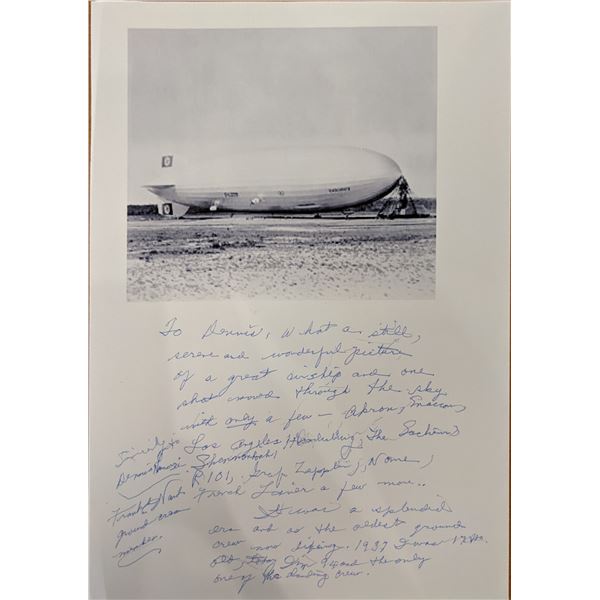 To Dennis, What a still,
serene and wonderful picture
of a great airship and one
that moved through the sky
with only a few — Akron, Macon,
Los Angeles, Hindenburg, The Sachsen,
Shenandoah,
R 101, Graf Zeppelin, Nome,
French Liner a few more..
It was a splendid
era and as the oldest ground
crew now living. 1937 I was
old, today I'm 94 and the only
one of the landing crew.
Sincerely to
Dennis
Frank Ward
ground crew
member.